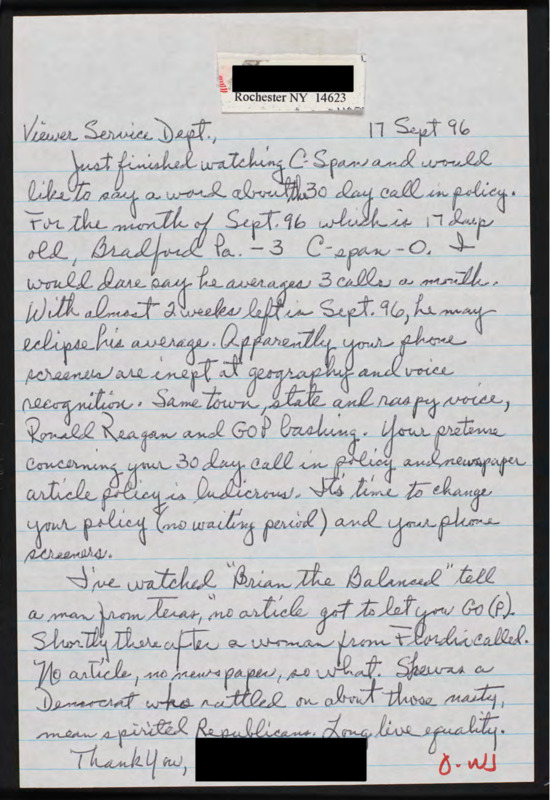 Rochester NY 14623
Viewer Service Dept., 17 Sept 96
Just finished watching C-Span and would
like to say a word about the 30 day call in policy.
For the month of Sept. 96 which is 17 days
old, Bradford Pa. - 3 C-span - 0. I
would dare say he averages 3 calls a month.
With almost 2 weeks left in Sept. 96, he may
eclipse his average. Apparently your phone
screeners are inept at geography and voice
recognition. Same town, state and raspy voice,
Ronald Reagan and GOP bashing. Your pretense
concerning your 30 day call in policy and newspaper
article policy is ludicrous. It's time to change
your policy (no waiting period) and your phone
screeners.
I've watched "Brian the Balanced" tell
a man from Texas, "no article got to let you GO(P).
Shortly thereafter a woman from Flordia called.
No article, no newspaper, so what. She was a
Democrat who rattled on about those nasty,
mean spirited Republicans. Long live equality.
Thank You,